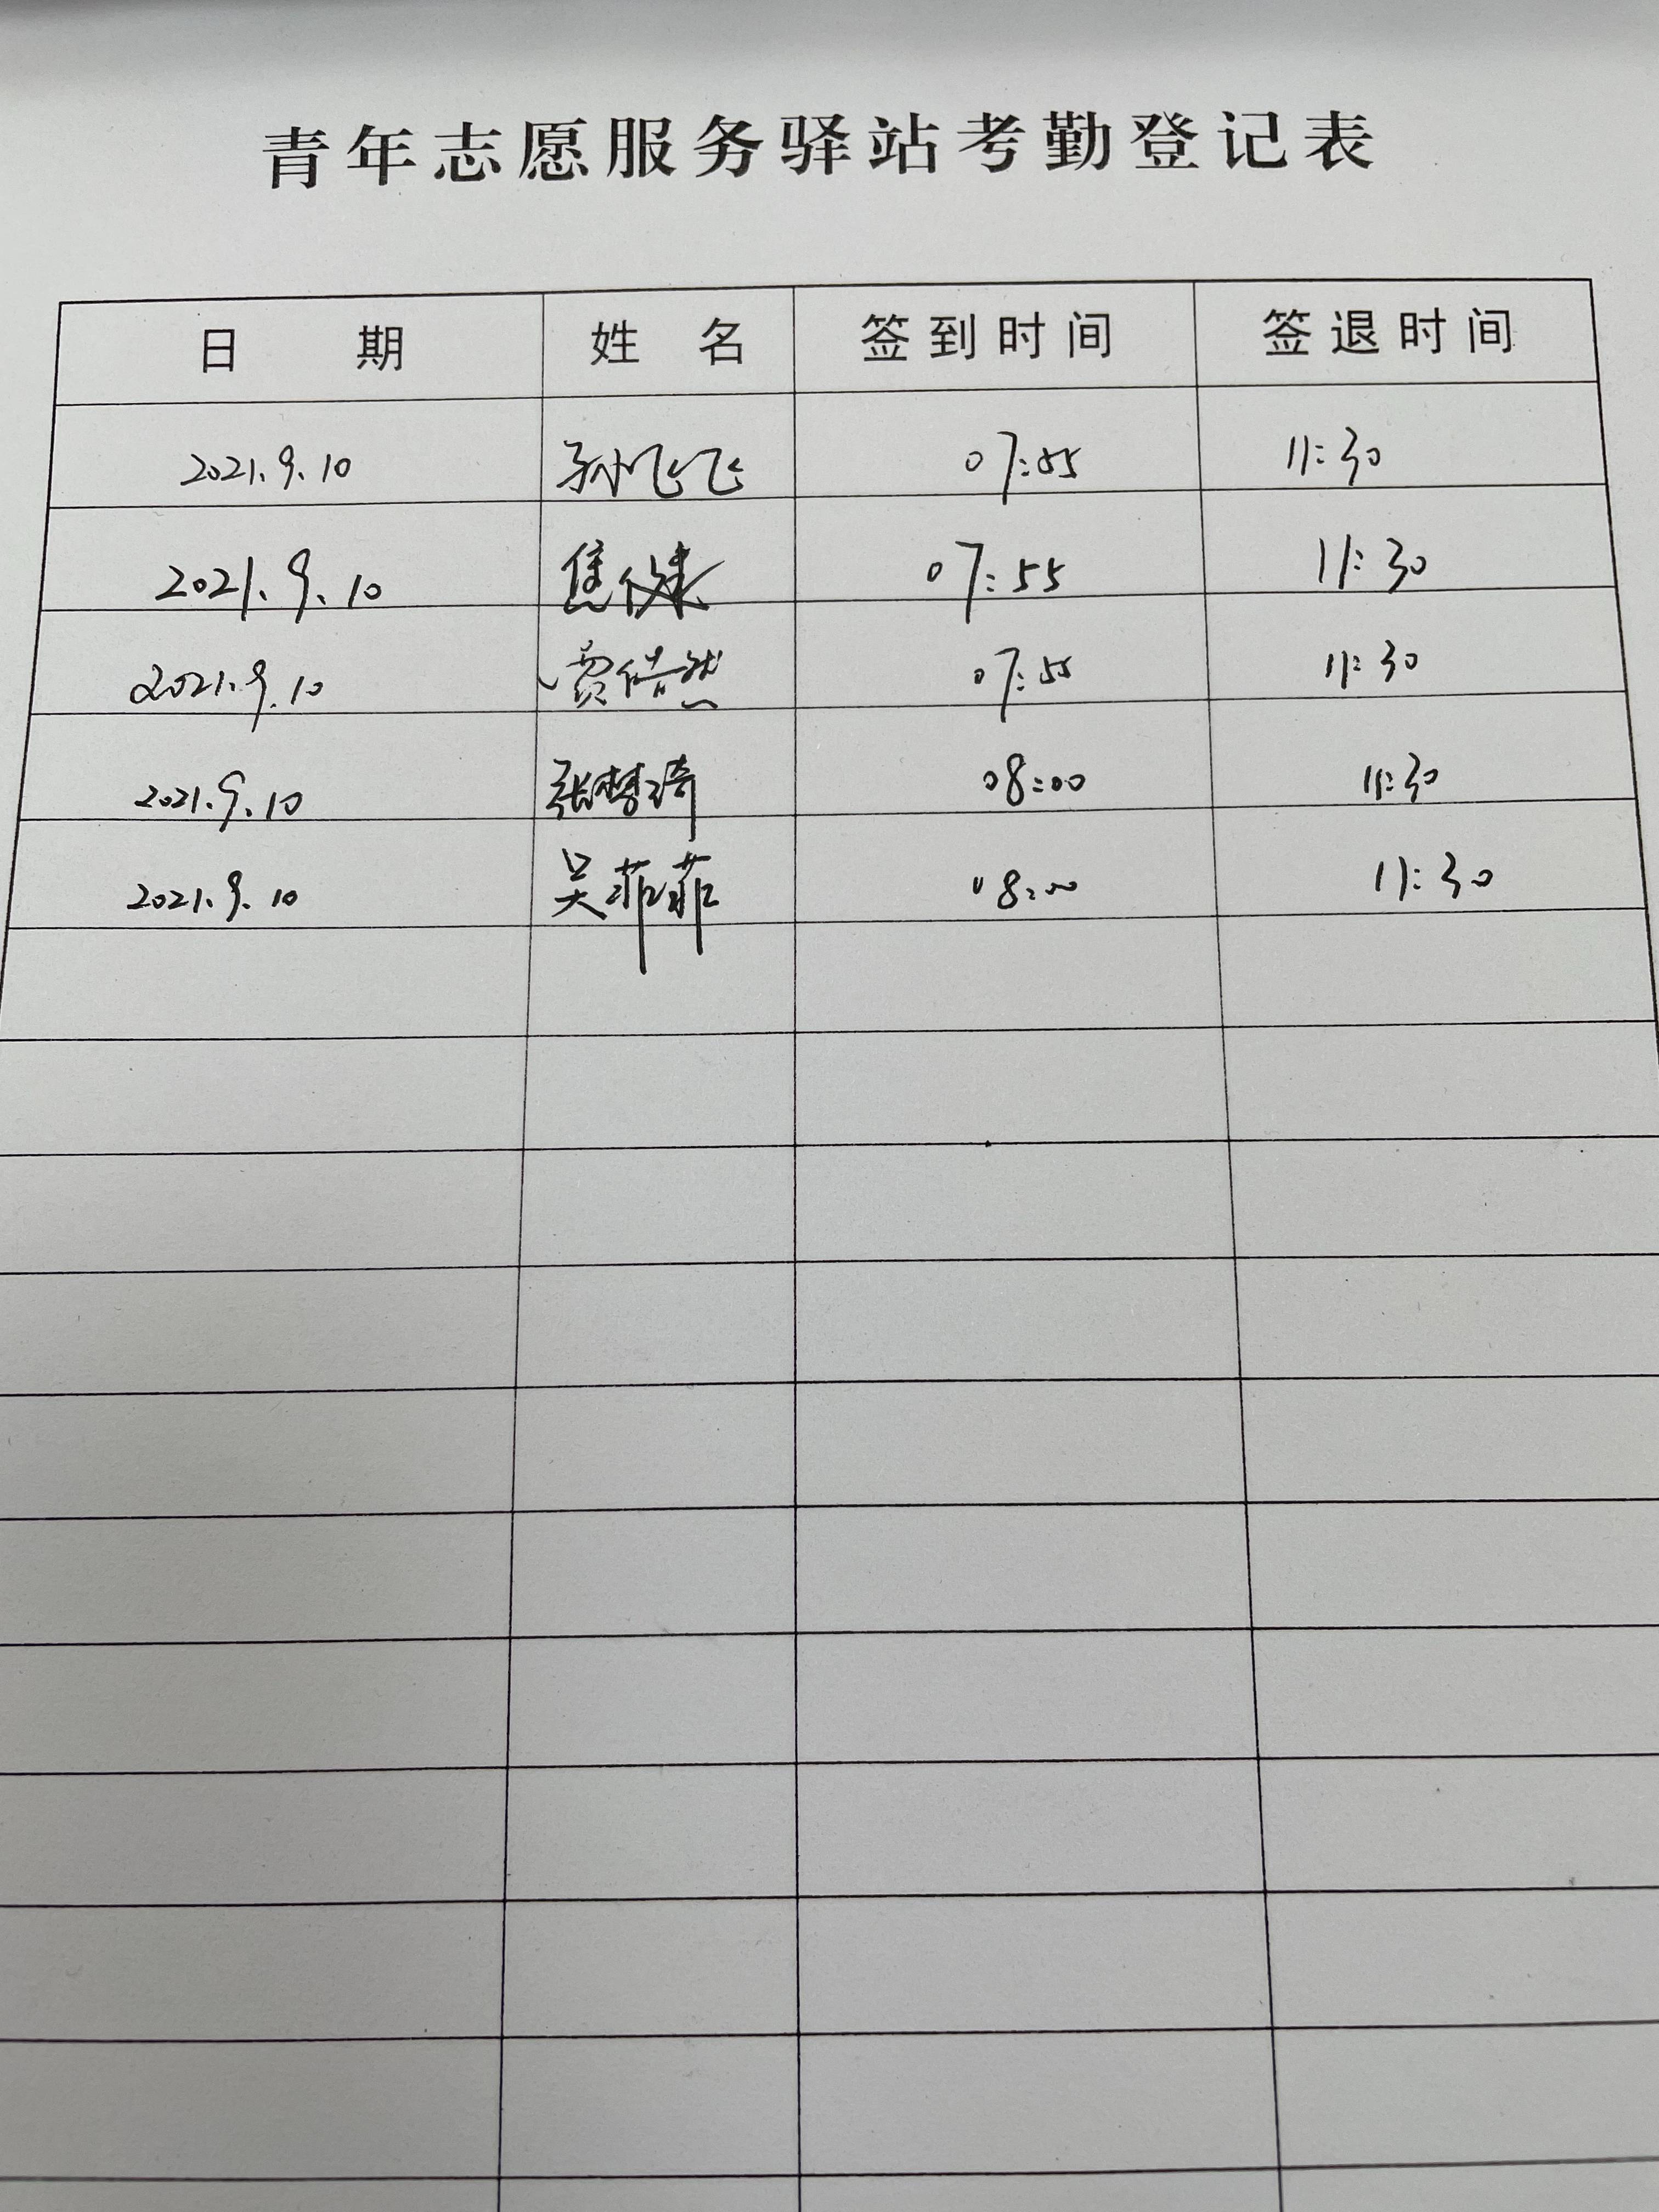 青年志愿服务驿站考勤登记表
日期 姓名 签到时间 签退时间
2021.9.10 孙飞飞 07:55 11:30
2021.9.10 焦 07:55 11:30
2021.9.10 贾浩然 07:55 11:30
2021.9.10 张梦琦 08:00 11:30
2021.9.10 吴菲菲 08:00 11:30